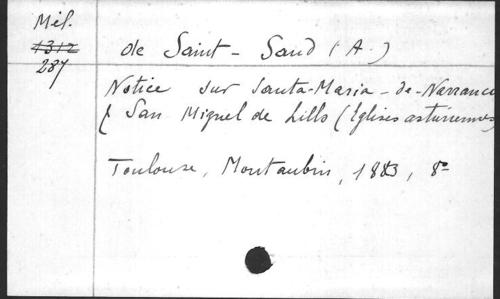 Mél.
1312
287
de Saint-Saud (A.)
Notice sur Santa-Maria-de-Narranco
& San Miguel de Lillo (Eglises asturiennes)
Toulouse, Montaubin, 1883, 8°